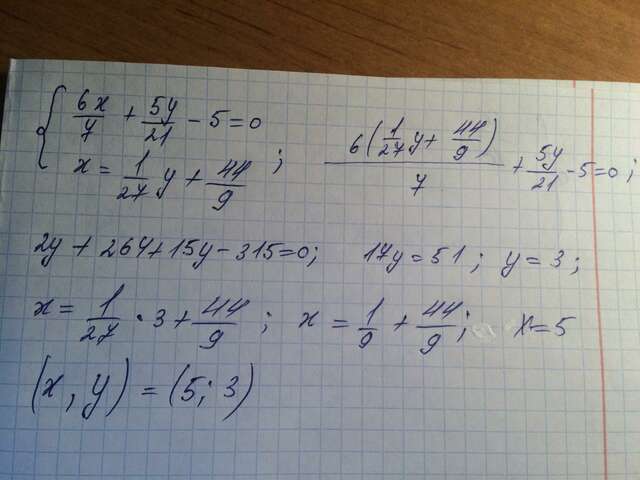 { 6x/7 + 5y/21 - 5 = 0
x = 1/27 y + 44/9 ; 6(1/27 y + 44/9)/7 + 5y/21 - 5 = 0;
2y + 264 + 15y - 315 = 0; 17y = 51; y = 3;
x = 1/27 · 3 + 44/9; x = 1/9 + 44/9; x = 5
(x, y) = (5; 3)